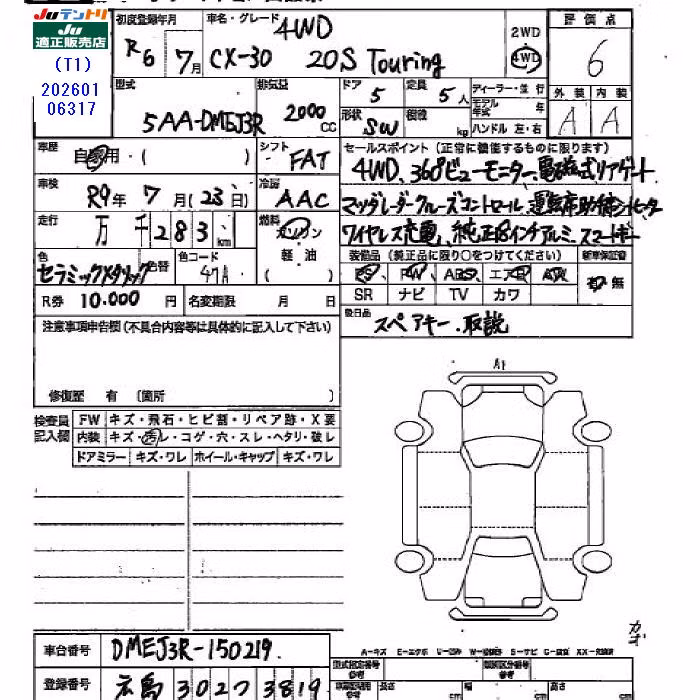 Juテントリ
Ju
適正販売店
(T1)
202601
06317
初度登録年月
R6 年 7月
車名・グレード
4WD
CX-30 20S Touring
2WD
4WD
評価点
6
外装 内装
A A
型式
5AA-DMEJ3R
排気量
2000 CC
ドア 5
定員 5人
形状 SW
積後 kg
ディーラー・並行
モデル年式 年
ハンドル 左・右
車歴
自家用・( )
シフト FAT
車検
R9年 7月(23日)
冷房 AAC
走行
万 千 283 km
燃料
ガソリン
軽油
( )
色
セラミックメタリック
色替
色コード
47A
R券 10.000 円
名変期限 月 日
セールスポイント(正常に機能するものに限ります)
4WD、360°ビューモニター、電磁式リアゲート
マツダレーダークルーズコントロール、運転席助手席シートヒーター
ワイヤレス充電、純正18インチアルミ、スマートキー
装備品(純正品に限り○をつけてください)
新車保証書
PW ABS エアB
SR ナビ TV カワ
有 無
後日品
スペアキー、取説
注意事項申告欄(不具合内容等は具体的に記入して下さい)
修復歴 有 (箇所 )
検査員
記入欄
FW キズ・飛石・ヒビ割・リペア跡・X要
内装 キズ・汚レ・コゲ・穴・スレ・ヘタリ・破レ
ドアミラー キズ・ワレ ホイール・キャップ キズ・ワレ
A1
A-キズ E-エクボ
車台番号
DMEJ3R-150219
登録番号
広島 302 ろ 3819
型式指定番号
参考
類別区分番号
参考
長さ cm
幅 cm
高さ cm